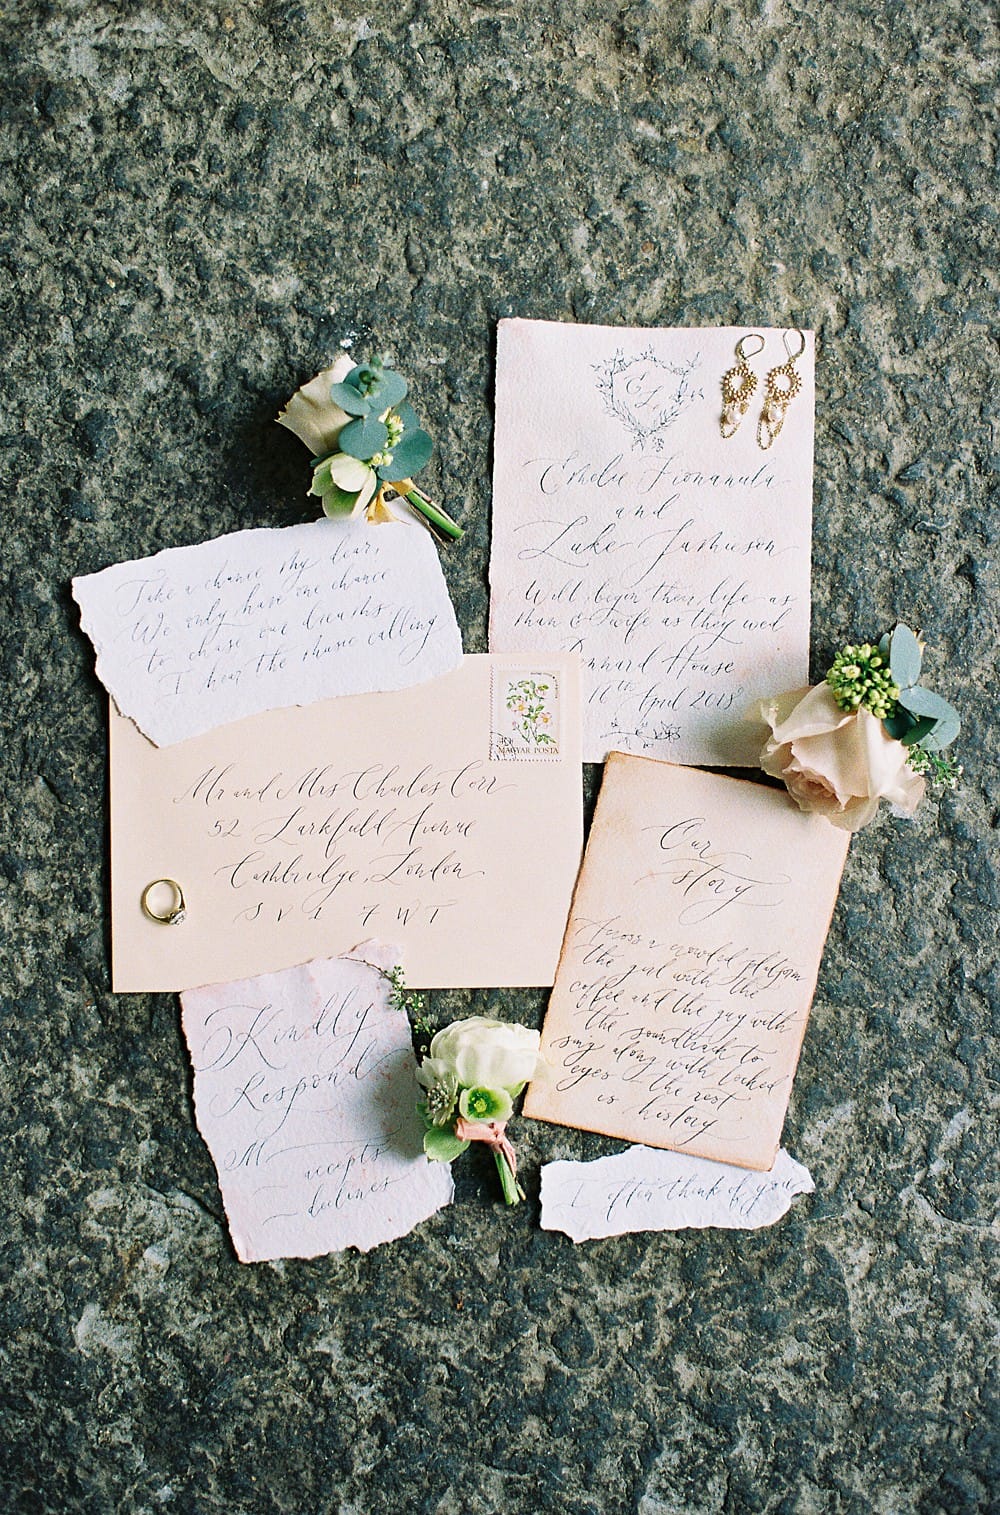 E L
Emelie Fionanula
and
Luke Jamieson
Will begin their life as
Man & Wife as they wed
Dennard House
16th April 2018
Take a chance my dear,
We only have one chance
to chase our dreams
I hear the music calling
MAGYAR POSTA
Mr and Mrs Charles Corr
52 Larkfield Avenue
Cambridge, London
SV1 7WT
Our
story
Across a crowded platform
the girl with the
coffee and the guy with
the soundtrack to
sing along with locked
eyes - the rest
is history
Kindly
Respond
M
accepts
declines
I often think of you